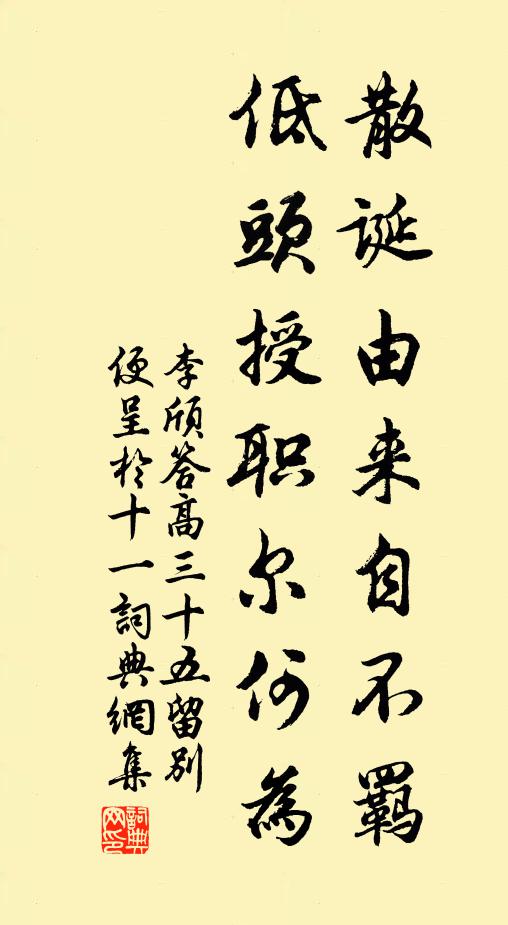 散诞由来自不羈
低頭授职尔何為
李頎答高三十五留别
便呈於十一詞典網集
詞典
网印